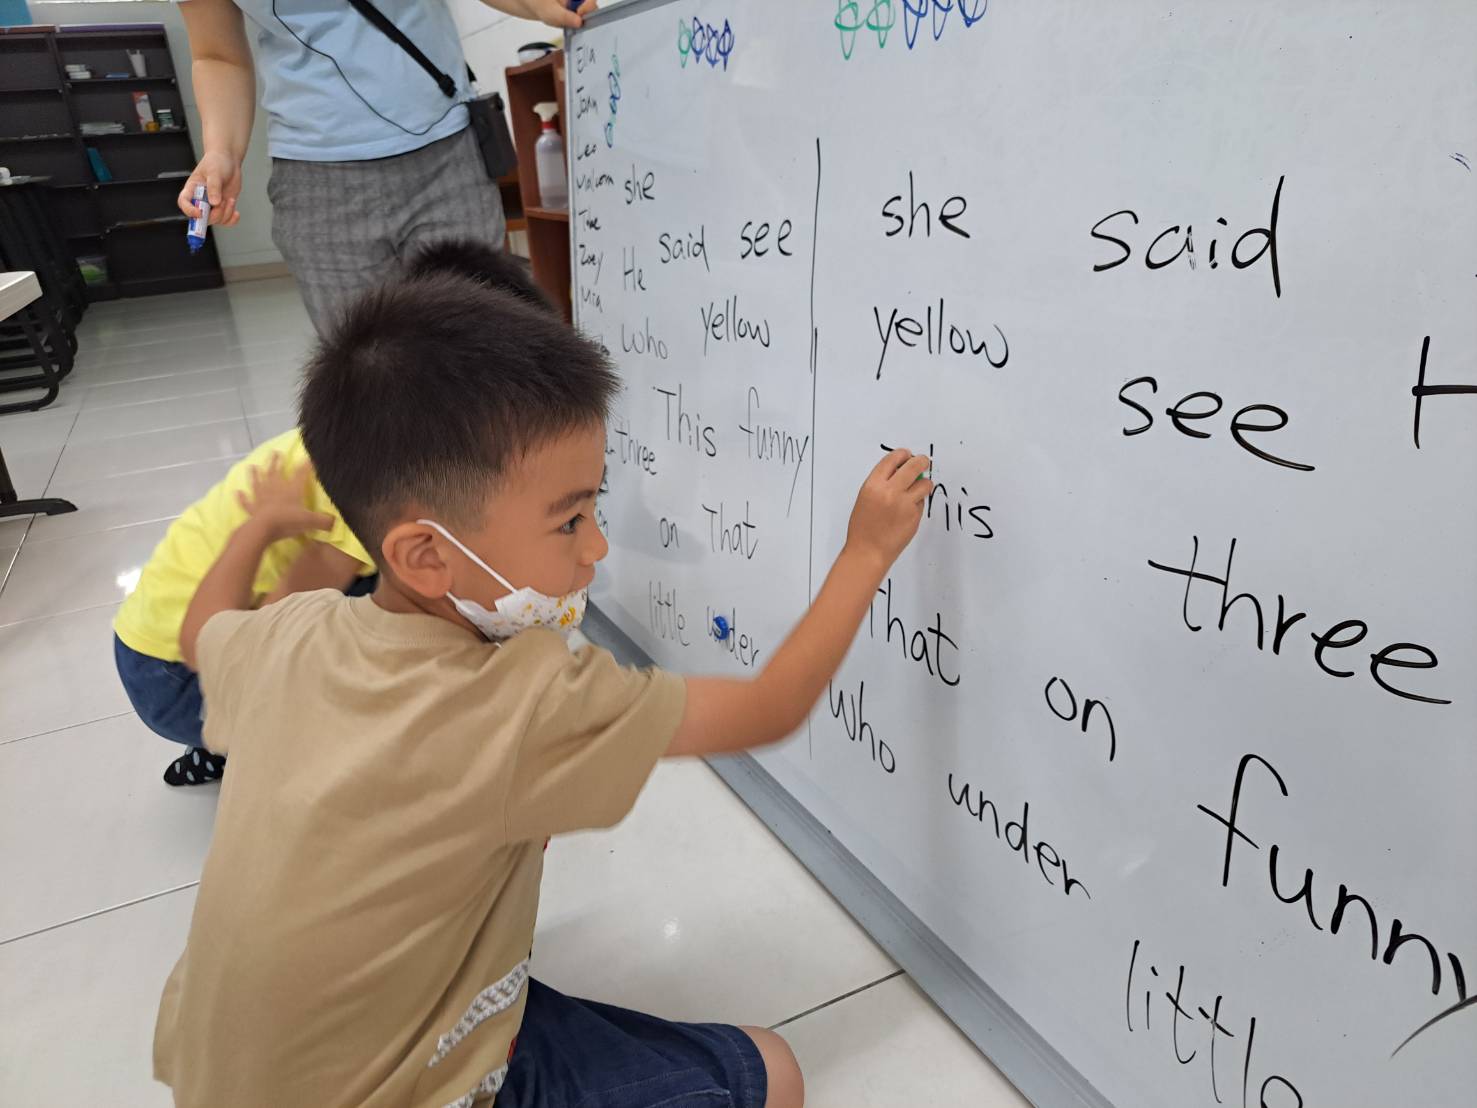 Ella
John
Leo
Malcom
Zoey
Mia
she
He said see
who yellow
This funny
three
on That
little under
she said
yellow see
This three
That on
who under funny
little